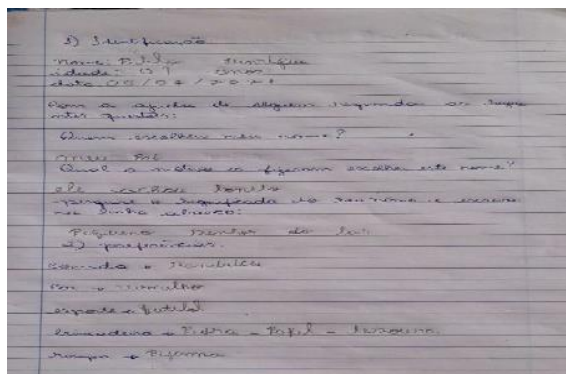 1) Identificação
nome: Henrique
idade: anos
data
Com a ajuda de alguém responda as
questões:
Quem escolheu seu nome?
meu Pai
Qual o motivo os fizeram escolher este nome?
ele achou bonito
o significado do seu nome e escreva
na linha abaixo:
Pequeno senhor do lar
2) preferências.
comida →
cor → vermelho
esporte → futibol
brincadeira → Pedra - Papel - tesoura
roupa → Pijama